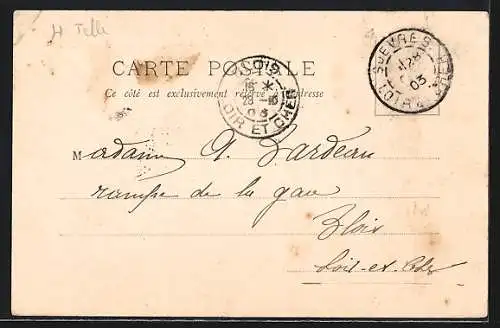 SUEVRES
28
03
LOIR & CHER
CARTE POSTALE
BLOIS
Ce côté est exclusivement réservé à l'adresse
28 - 10
03
LOIR ET CHER
Madame A. Dardeau
rampe de la gare
Blois
Loir-et-Cher